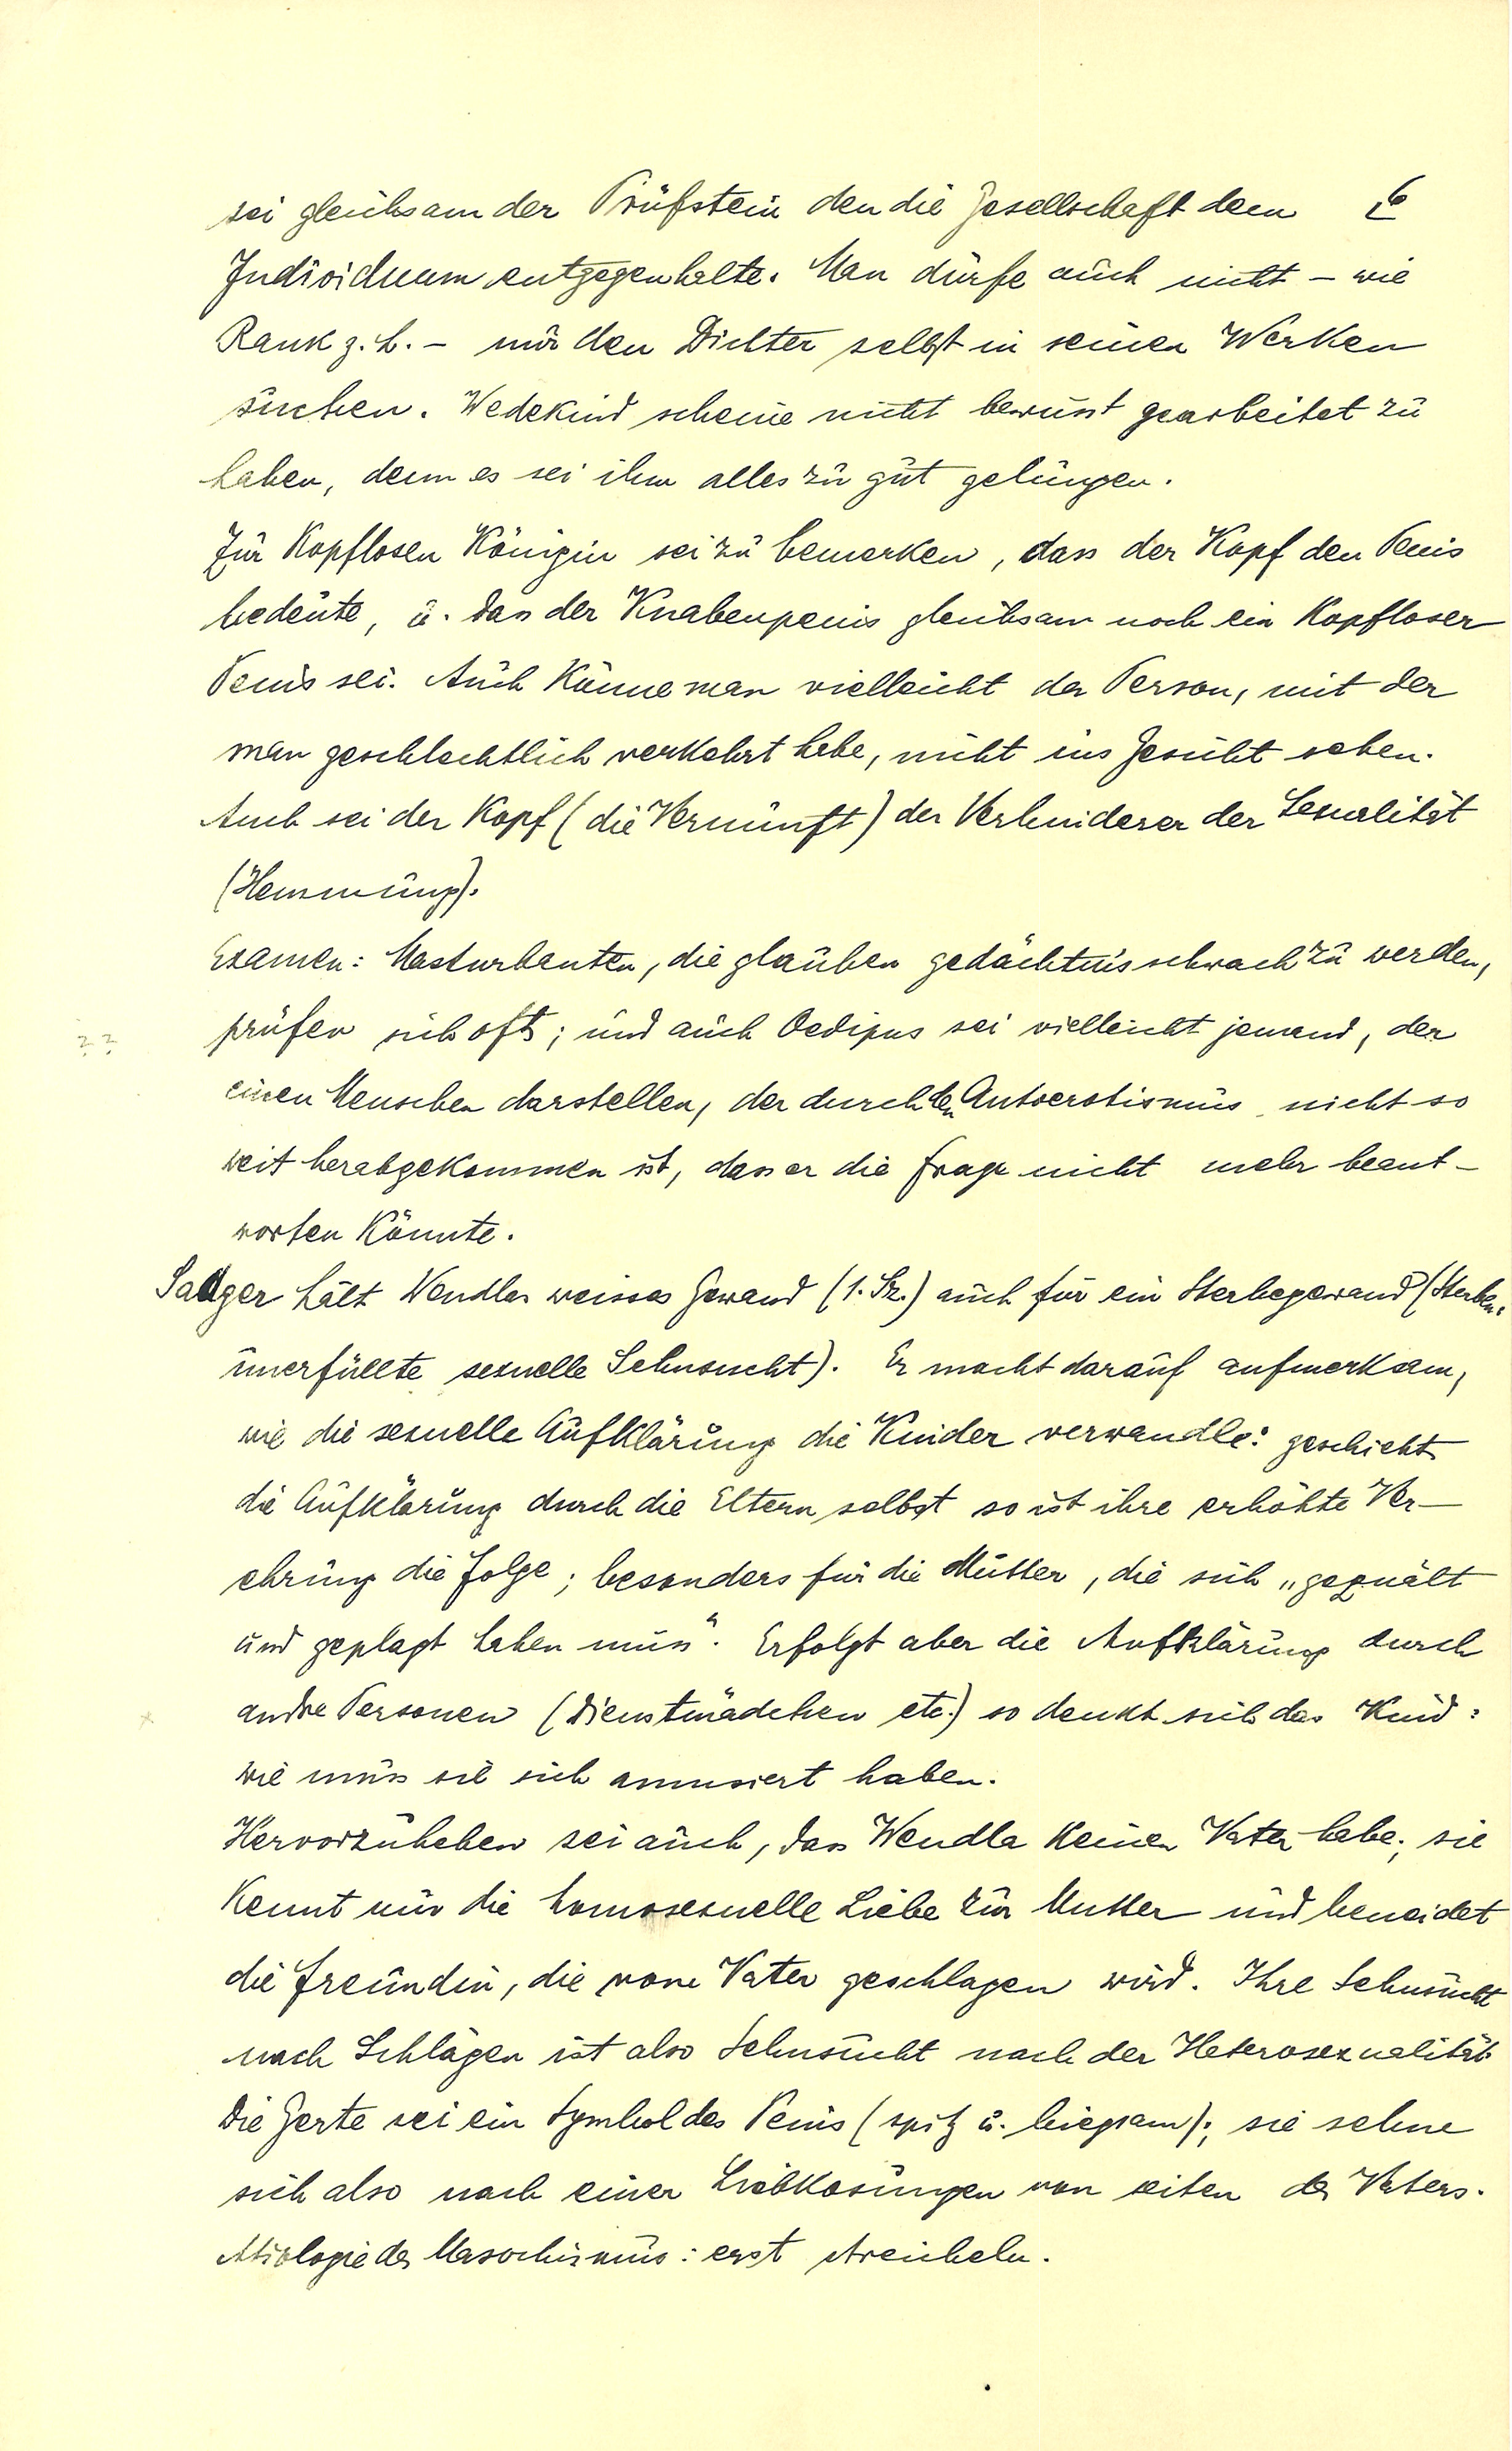 sei gleichsam der Prüfstein den die Gesellschaft dem 6
Individuum entgegenhalte. Man dürfe auch nicht – wie
Rank z. b. – nur den Dichter selbst in seinen Werken
suchen. Wedekind scheine nicht bewusst gearbeitet zu
haben, denn es sei ihm alles zu gut gelungen.
Zur Kopflosen Königin sei zu bemerken, dass der Kopf den Penis
bedeute, u. dass der Knabenpenis gleichsam noch ein Kopfloser
Penis sei. Auch Könne man vielleicht der Person, mit der
man geschlechtlich verkehrt habe, nicht ins Gesicht sehen.
Auch sei der Kopf (die Vernunft) der Verhinderer der Sexualität
(Hemmung).
Examen: Masturbanten, die glauben gedächtnisschwach zu werden,
?? prüfen sich oft; und auch Oedipus sei vielleicht jemand, der
einen Menschen darstellen, der durch den Autoerotismus nicht so
weit herabgekommen ist, dass er die Frage nicht mehr beant-
worten Könnte.
Sadger hält Wendlas weisses Gewand (1. Sz.) auch für ein Sterbegewand (Sterben:
unerfüllte sexuelle Sehnsucht). Er macht darauf aufmerksam,
wie die sexuelle Aufklärung die Kinder verwandle: geschieht
die Aufklärung durch die Eltern selbst so ist ihre erhöhte Ver-
ehrung die Folge; besonders für die Mutter, die sich „gequält
und geplagt haben muss“. Erfolgt aber die Aufklärung durch
x andre Personen (Dienstmädchen etc.) so denkt sich das Kind:
wie muss sie sich amusiert haben.
Hervorzuheben sei auch, dass Wendla Keinen Vater habe; sie
Kennt nur die homosexuelle Liebe zur Mutter und beneidet
die Freundin, die vom Vater geschlagen wird. Ihre Sehnsucht
nach Schlägen ist also Sehnsucht nach der Heterosexualität.
Die Gerte sei ein Symbol des Penis (spitz u. biegsam); sie sehne
sich also nach einer Liebkosungen von seiten des Vaters.
Ätiologie des Masochismus: erst streicheln.